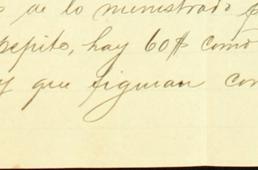 de lo ministrado
pepito, hay 60$ como
y que figuran con